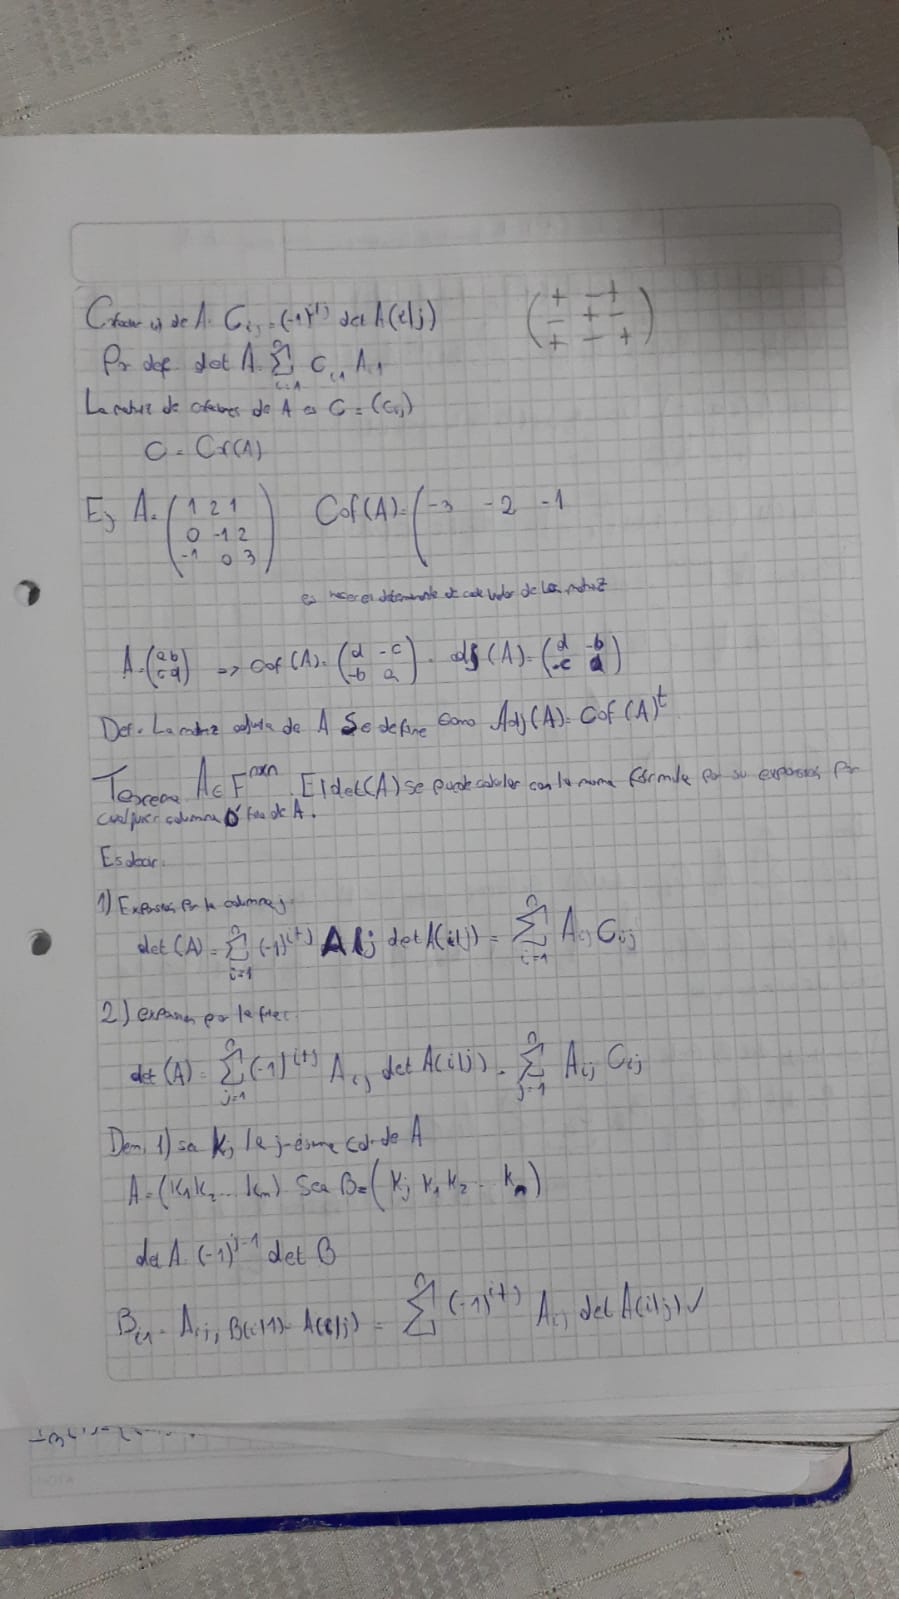 C_ij = (-1)^ij det A(i|j)
( + - +
- + -
+ - + )
Por def. det A = Σ_{i=1}^{n} C_i1 A_i1
La matriz de de A es C = (C_ij)
C = Cof(A)
Ej A = ( 1 2 1
0 -1 2
-1 0 3 )
Cof(A) = ( -3 -2 -1
es hacer el determinante de cada valor de la matriz
A = (a b
c d) => Cof(A) = (d -c
-b a) . adj(A) = (d -b
-c a)
Def. La matriz adjunta de A Se define como Adj(A) = Cof(A)^t
Teorema A ∈ F^{nxn}. El det(A) se puede calcular con la misma fórmula por su expansión por
cualquier columna ó fila de A.
Es decir.
1) Expansión por la columna j.
det(A) = Σ_{i=1}^{n} (-1)^{i+j} A ij det A(i|j) = Σ_{i=1}^{n} A_ij C_ij
2) expansión por la fila i
det(A) = Σ_{j=1}^{n} (-1)^{i+j} A_ij det A(i|j) = Σ_{j=1}^{n} A_ij C_ij
Dem. 1) sea K_j la j-ésima col. de A
A = (K_1 K_2 ... K_n) Sea B = (K_j K_1 K_2 ... K_n)
det A = (-1)^{j-1} det B
B_i1 = A_ij, B(i|1) = A(i|j) = Σ^{n} (-1)^{i+j} A_ij det A(i|j) ✓